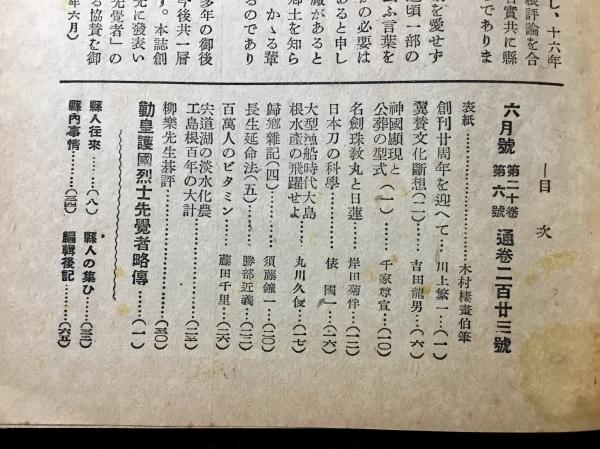 し、十六年
根評論を合
名實共に縣
でありま
を愛せず
頃一部の
ふ言葉を
の必要は
あると申し
識があると
郷土を知ら
かゝる輩
るのであり
多年の御後
今後共一層
す。本誌創
先に發表い
先覺者」の
る協賛を御
年六月)
―目次
六月號 第二十卷 第六號 通卷二百廿三號
表紙……………木村棲畫伯筆
創刊廿周年を迎へて…川上繁一…(一)
翼賛文化斷想(二)……吉田龍男…(六)
神國顯現と
公葬の型式(一)……千家尊宣…(一〇)
名劍珠敎丸と日蓮……岸田菊伴…(一二)
日本刀の科學………俵國一…(一六)
大型漁船時代大島
根水產の飛躍せよ……丸川久俊…(一七)
歸鄕雜記(四)………須藤鐵一…(二〇)
長生延命法(五)……勝部近義…(二三)
百萬人のビタミン……藤田千里…(二六)
宍道湖の淡水化農
工島根百年の大計………(二三)
柳樂先生碁評…………(三〇)
勤皇護國烈士先覺者略傳……(一)
縣人往來……(八)
縣人の集ひ…(三三)
縣內事情……(三四)
編輯後記……(六五)